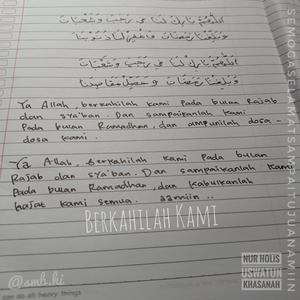 اللهم بارك لنا في رجب وشعبان
وبلغنا رمضان فاغفر لنا ذنوبنا
اللهم بارك لنا في رجب وشعبان
وبلغنا رمضان وحصل مقاصدنا
Ya Allah, berkahilah kami pada bulan Rajab
dan sya'ban. Dan sampaikanlah kami
Pada bulan Ramadhan, dan ampunilah dosa-
dosa kami.
Ya Allah, berkahilah kami pada bulan
Rajab dan sya'ban. Dan sampaikanlah kami
Pada bulan Ramadhan, dan kabulkanlah
hajat kami semua. aamiin ..
BERKAHILAH KAMI
NUR HOLIS
USWATUN
KHASANAH
@smh.ki
can do all heavy things
SEMOGA SELAMAT SAMPAI TUJUAN AMIN